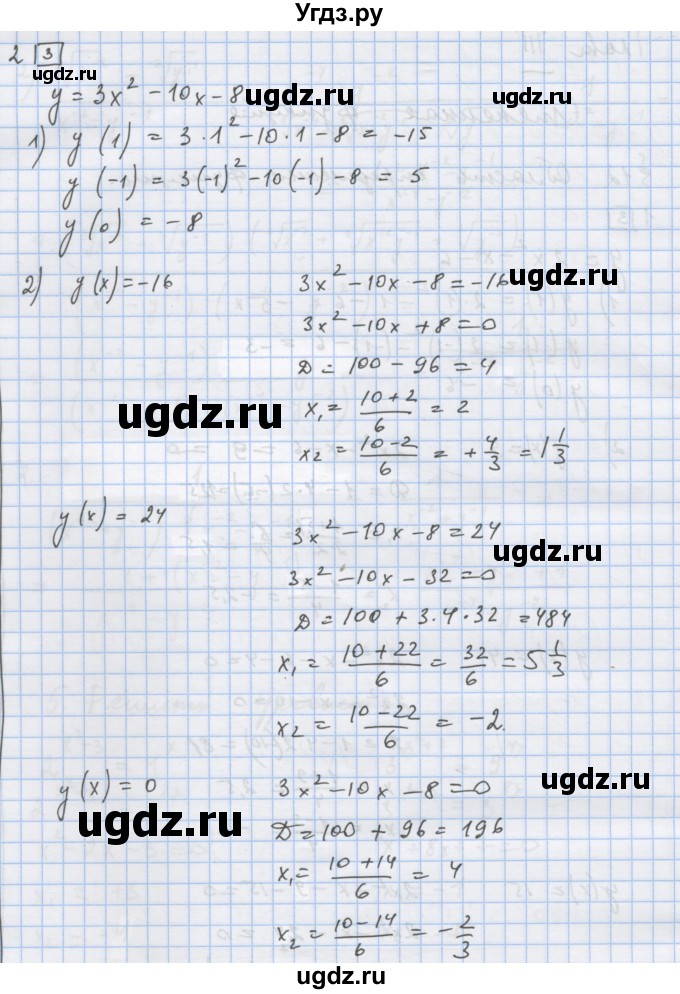 Угдз.ру
2 3
ugdz.ru
y = 3x² - 10x - 8
ugdz.ru
1) y(1) = 3·1² - 10·1 - 8 = -15
y(-1) = 3(-1)² - 10(-1) - 8 = 5
y(0) = -8
2) y(x) = -16 3x² - 10x - 8 = -16
ugdz.ru
3x² - 10x + 8 = 0
D = 100 - 96 = 4
x₁ = (10+2)/6 = 2
ugdz.ru
x₂ = (10-2)/6 = + 4/3 = 1 1/3
y(x) = 24 3x² - 10x - 8 = 24
ugdz.ru
3x² - 10x - 32 = 0
D = 100 + 3·4·32 = 484
x₁ = (10+22)/6 = 32/6 = 5 1/3
x₂ = (10-22)/6 = -2.
y(x) = 0 3x² - 10x - 8 = 0
ugdz.ru
ugdz.ru
D = 100 + 96 = 196
x₁ = (10+14)/6 = 4
x₂ = (10-14)/6 = - 2/3
ugdz.ru
ugdz.ru